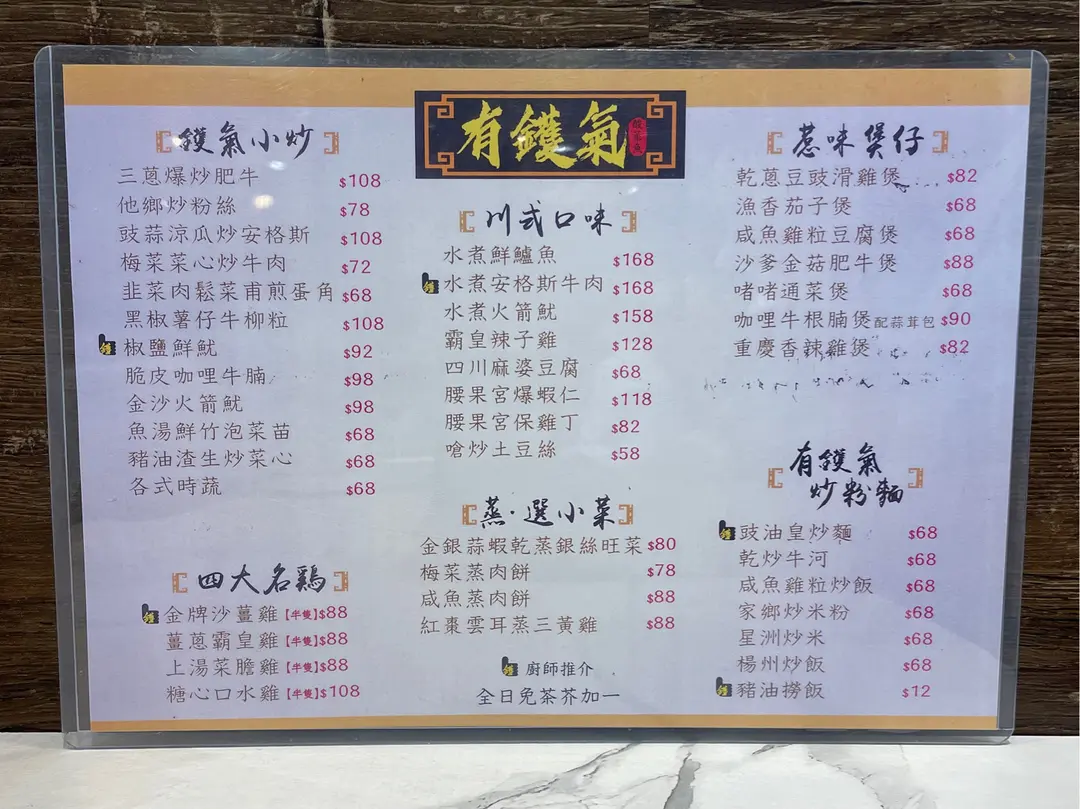 有鑊氣
酸菜魚
鑊氣小炒
三蔥爆炒肥牛 $108
他鄉炒粉絲 $78
豉蒜涼瓜炒安格斯 $108
梅菜菜心炒牛肉 $72
韭菜肉鬆菜甫煎蛋角 $68
黑椒薯仔牛柳粒 $108
椒鹽鮮魷 $92
脆皮咖哩牛腩 $98
金沙火箭魷 $98
魚湯鮮竹泡菜苗 $68
豬油渣生炒菜心 $68
各式時蔬 $68
四大名鷄
金牌沙薑雞【半隻】$88
薑蔥霸皇雞【半隻】$88
上湯菜膽雞【半隻】$88
糖心口水雞【半隻】$108
川式口味
水煮鮮鱸魚 $168
水煮安格斯牛肉 $168
水煮火箭魷 $158
霸皇辣子雞 $128
四川麻婆豆腐 $68
腰果宮爆蝦仁 $118
腰果宮保雞丁 $82
嗆炒土豆絲 $58
蒸·選小菜
金銀蒜蝦乾蒸銀絲旺菜 $80
梅菜蒸肉餅 $78
咸魚蒸肉餅 $88
紅棗雲耳蒸三黃雞 $88
廚師推介
全日免茶芥加一
惹味煲仔
乾蔥豆豉滑雞煲 $82
漁香茄子煲 $68
咸魚雞粒豆腐煲 $68
沙爹金菇肥牛煲 $88
啫啫通菜煲 $68
咖哩牛根腩煲配蒜茸包 $90
重慶香辣雞煲 $82
有鑊氣
炒粉麵
豉油皇炒麵 $68
乾炒牛河 $68
咸魚雞粒炒飯 $68
家鄉炒米粉 $68
星洲炒米 $68
楊州炒飯 $68
豬油撈飯 $12